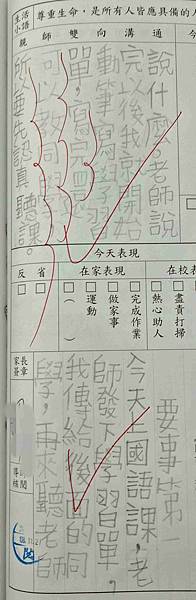 生活小語
尊重生命，是所有人皆應具備的人
親師雙向溝通
說什麼。老師說
完以後我就開始
動筆寫學習
單，寫完
可以教同學
所以要先認真聽課。
今天表現
反省
在家表現
在校表
□盡責打掃
□熱心助人
□完成作業
□做家事
□運動
□(  )
要事第一
今天上國語課，老
師發下學習單，
我傳給後面的同
學，再來聽老師
家長簽章